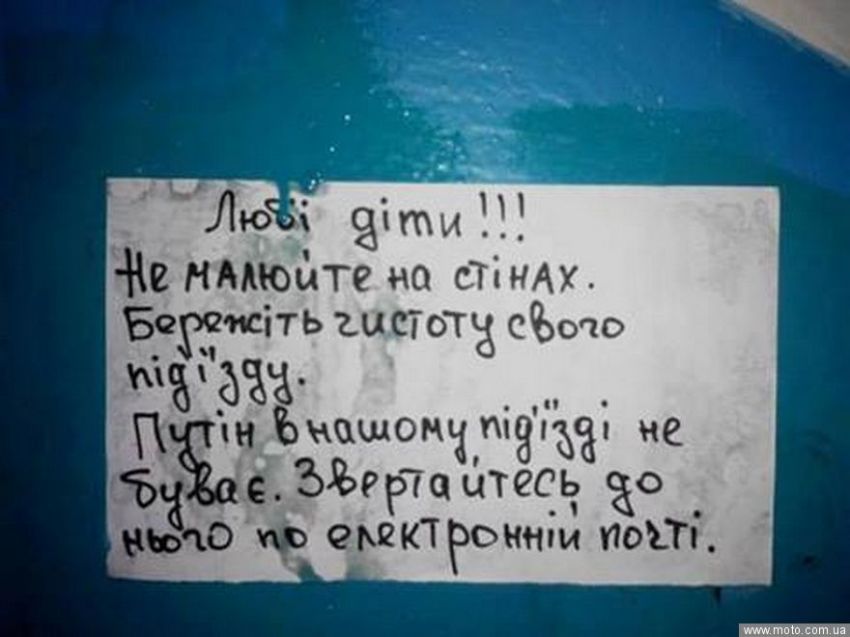 Любі діти!!!
Не малюйте на стінах.
Бережіть чистоту свого
під'їзду.
Путін в нашому під'їзді не
буває. Звертайтесь до
нього по електронній почті.
www.moto.com.ua